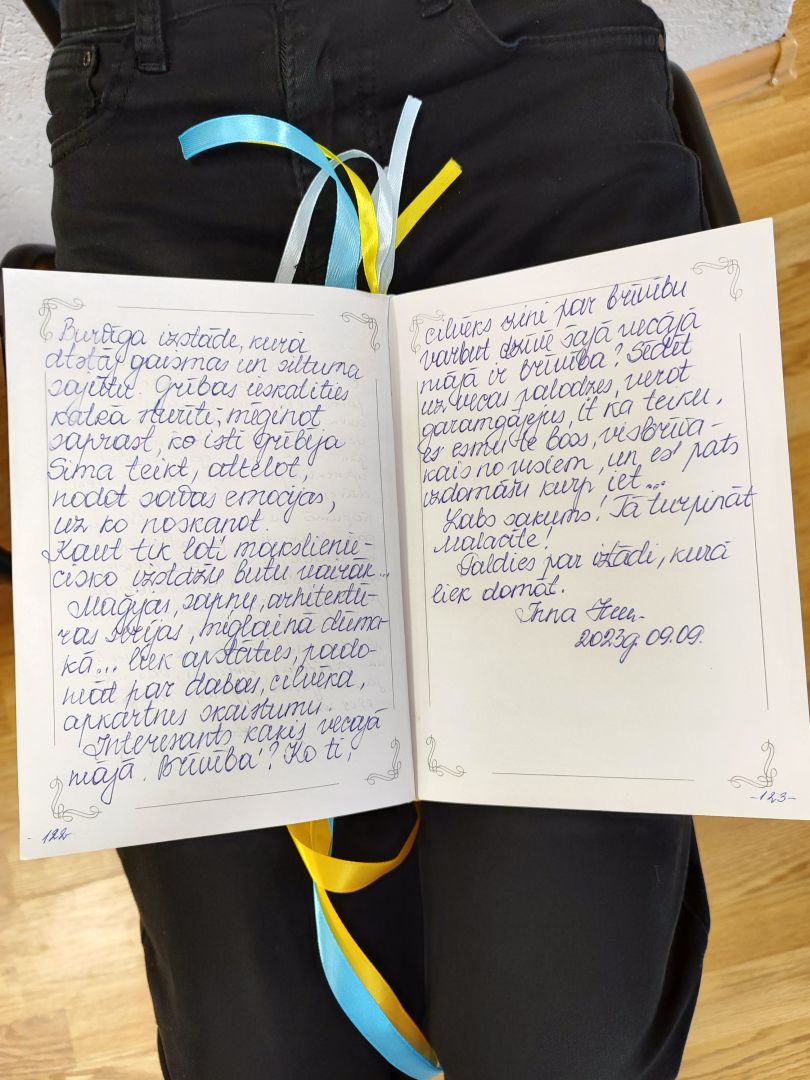 Burvīga izstāde, kurā
atstāj gaismas un siltuma
sajūtu. Gribas ieskatīties
katrā stūrītī, mēģinot
saprast, ko īsti gribēja
Sima teikt, attēlot,
nodot savas emocijas,
uz ko noskaņot.
Kaut tik ļoti mākslienie-
cisko izstāžu būtu vairāk...
Maģijas, sapņu, arhitektū-
ras sērijas, miglainā dūma-
kā... liek apstāties, pado-
māt par dabas, cilvēka,
apkārtnes skaistumu.
Interesants kaķis vecajā
mājā. Brīvība? Ko ti,
- 122
cilvēks zini par brīvību
varbūt dzīve šajā vecajā
mājā ir brīvība? Sēdēt
uz vecas palodzes, vērot
garāmgājējus, it kā teiktu,
es esmu te boss, visbrīvā-
kais no visiem, un es pats
izdomāšu kurp iet...
Labs sākums! Tā turpināt
Malacīte!
Paldies par izstādi, kurā
liek domāt.
Inna
2023g. 09.09.
-123-